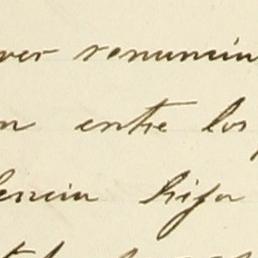 ver renuncia
n entre los
lencia hija